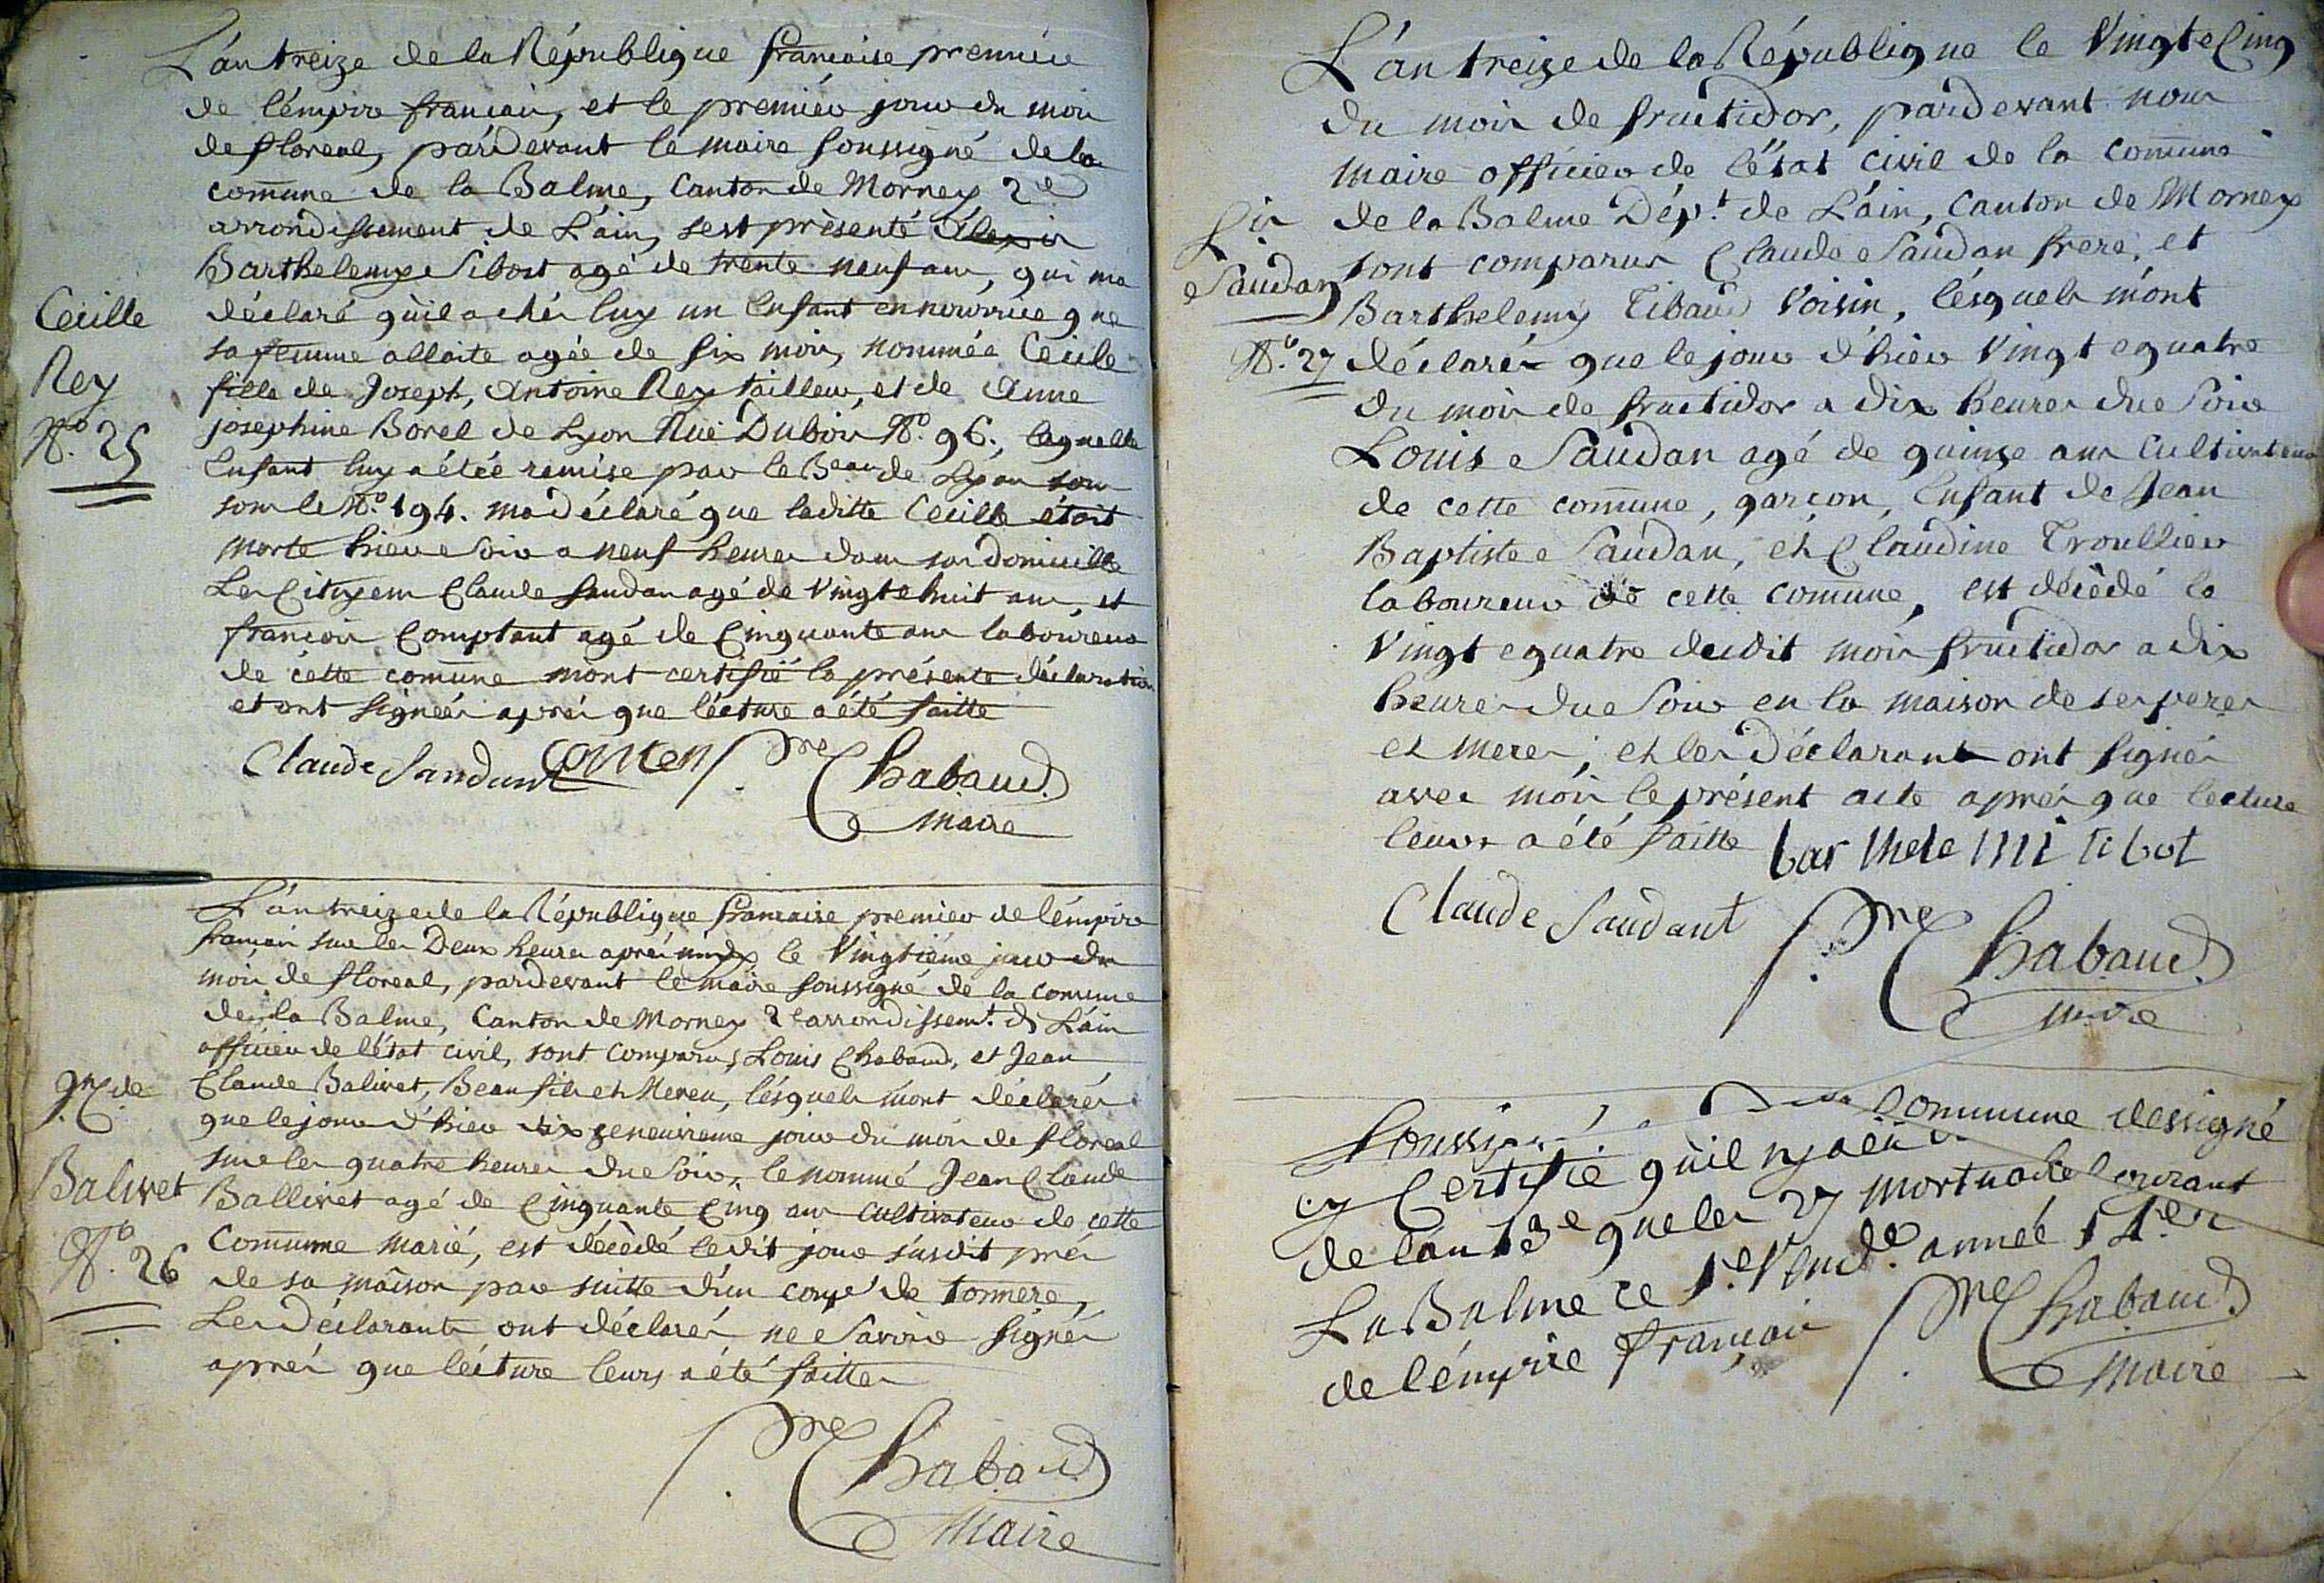 L'an treize de la République francaise premiere
de l'émpire francais, et le premier jour du mois
de floreal, pardevant le maire soussigné de la
comune de la Balme, Canton de Mornex 2e
arrondissement de L'ain, s'est présenté
Barthelemy Tibost agé de trente neuf ans, qui ma
déclaré qu'il a chés luy un Enfant en nourrice que
sa femme allaite agée de six mois, nommée Cecile
fille de Joseph, Antoine Rey tailleur, et de Anne
josephine Borel de Lyon Rue Dubois No. 96., laquelle
Enfant luy a étée remise par le Beau de Lyon sous
sous le No. 194. ma déclaré que laditte Cecille étoit
morte hier Soir a neuf heures dans son domicille
Les Citoyens Claude Saudan agé de Vingt huit ans, et
francois Comptant agé de Cinquante ans laboureur
de cette comune m'ont certifié la présente déclaration
et ont Signées aprés que lécture a été faitte
Cecille
Rey
No. 25
Claude Sandant Conten Pre Chabaud
maire
L'an treize de la République francaise premier de lémpire
francais sur les Deux heures aprés midy le Vingtiéme jour du
mois de floreal, pardevant le maire soussigné de la comune
de la Balme, Canton de Mornex 2e arrondissemt. de L'ain
officier de l'état civil, sont comparus Louis Chabaud, et Jean
Claude Balivet, Beau fils et Neveu, lésquels m'ont déclarés
que le jour d'hier dix geneuvieme jour du mois de floreal
sur les quatre heures du Soir, le nommé Jean Claude
Ballivet agé de Cinquante Cinq ans cultivateur de cette
Comune marié, est décédé ledit jour susdit prés
de sa maison par suitte d'un coup de tonnere,
Les Déclarants ont déclarés ne Savoir Signés
aprés que lécture leurs a été faitte
Jn. Cde.
Balivet
No. 26
Pre Chabaud
Maire
L'an treize de la République le Vingt Cinq
du mois de fructidor, pardevant nous
maire officier de l'état civil de la comune
de la Balme Dépt. de L'ain, Canton de Mornex
sont comparus Claude Saudan frere, et
Barthelemy Tibaud Voisin, lésquels m'ont
déclarés que le jour d'hier Vingt equatre
du mois de fructidor a dix heures du Soir
Louis Saudan agé de quinze ans Cultivateur
de cette comune, garcon, Enfant de Jean
Baptiste Saudan, et Claudine Troullier
laboureur de cette comune, est décédé le
Vingt equatre dudit mois fructidor a dix
heures du Soir en la maison de ses peres
et meres, et les Déclarants ont signés
avec mois le présent acte aprés que lecture
leurs a été faitte
Saudan
No. 27
barthelemi tibot
Claude Saudant Pre Chabaud
maire
Commune dessigné
cy Certifie qu'il ny a eu
de l'an 13e que les 27 mortuaire Courant
La Balme ce 1e. Vende. année 14.
de l'émpire francais
Pre Chabaud
Maire